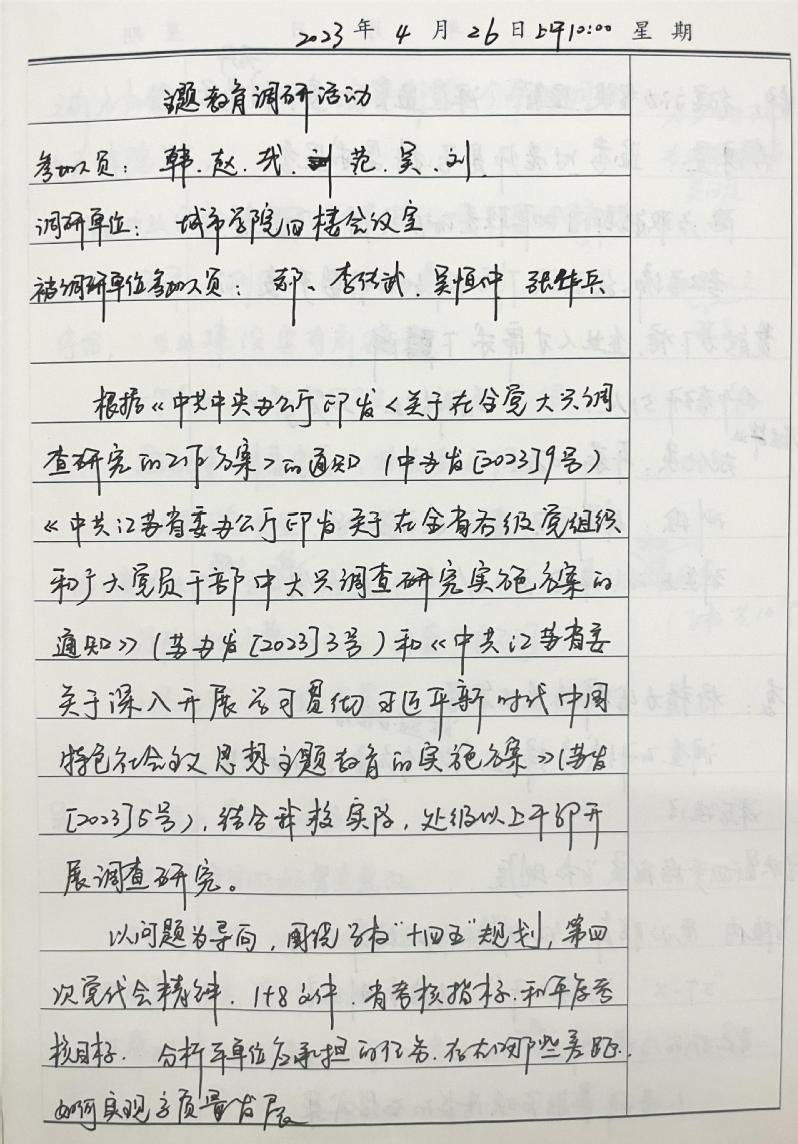 2023年 4 月 26日上午10:00 星 期
主题教育调研活动
参加人员：韩、赵、戎、范、吴、刘
调研单位：城市学院四楼会议室
被调研单位参加人员：郭、李传武、吴恒仲 张华兵
根据《中共中央办公厅印发〈关于在全党大兴调
查研究的工作方案〉的通知（中办发[2023]9号）
《中共江苏省委办公厅印发关于在全省各级党组织
和广大党员干部中大兴调查研究实施方案的
通知》（苏办发[2023]3号）和《中共江苏省委
关于深入开展学习贯彻习近平新时代中国
特色社会主义思想主题教育的实施方案》（苏发
[2023]5号），结合我校实际，处级以上干部开
展调查研究。
以问题为导向，围绕学校“十四五”规划，第四
次党代会精神、1+8文件、省考核指标和年度考
核目标、分析本单位应承担的任务、存在哪些差距、
如何实现高质量发展